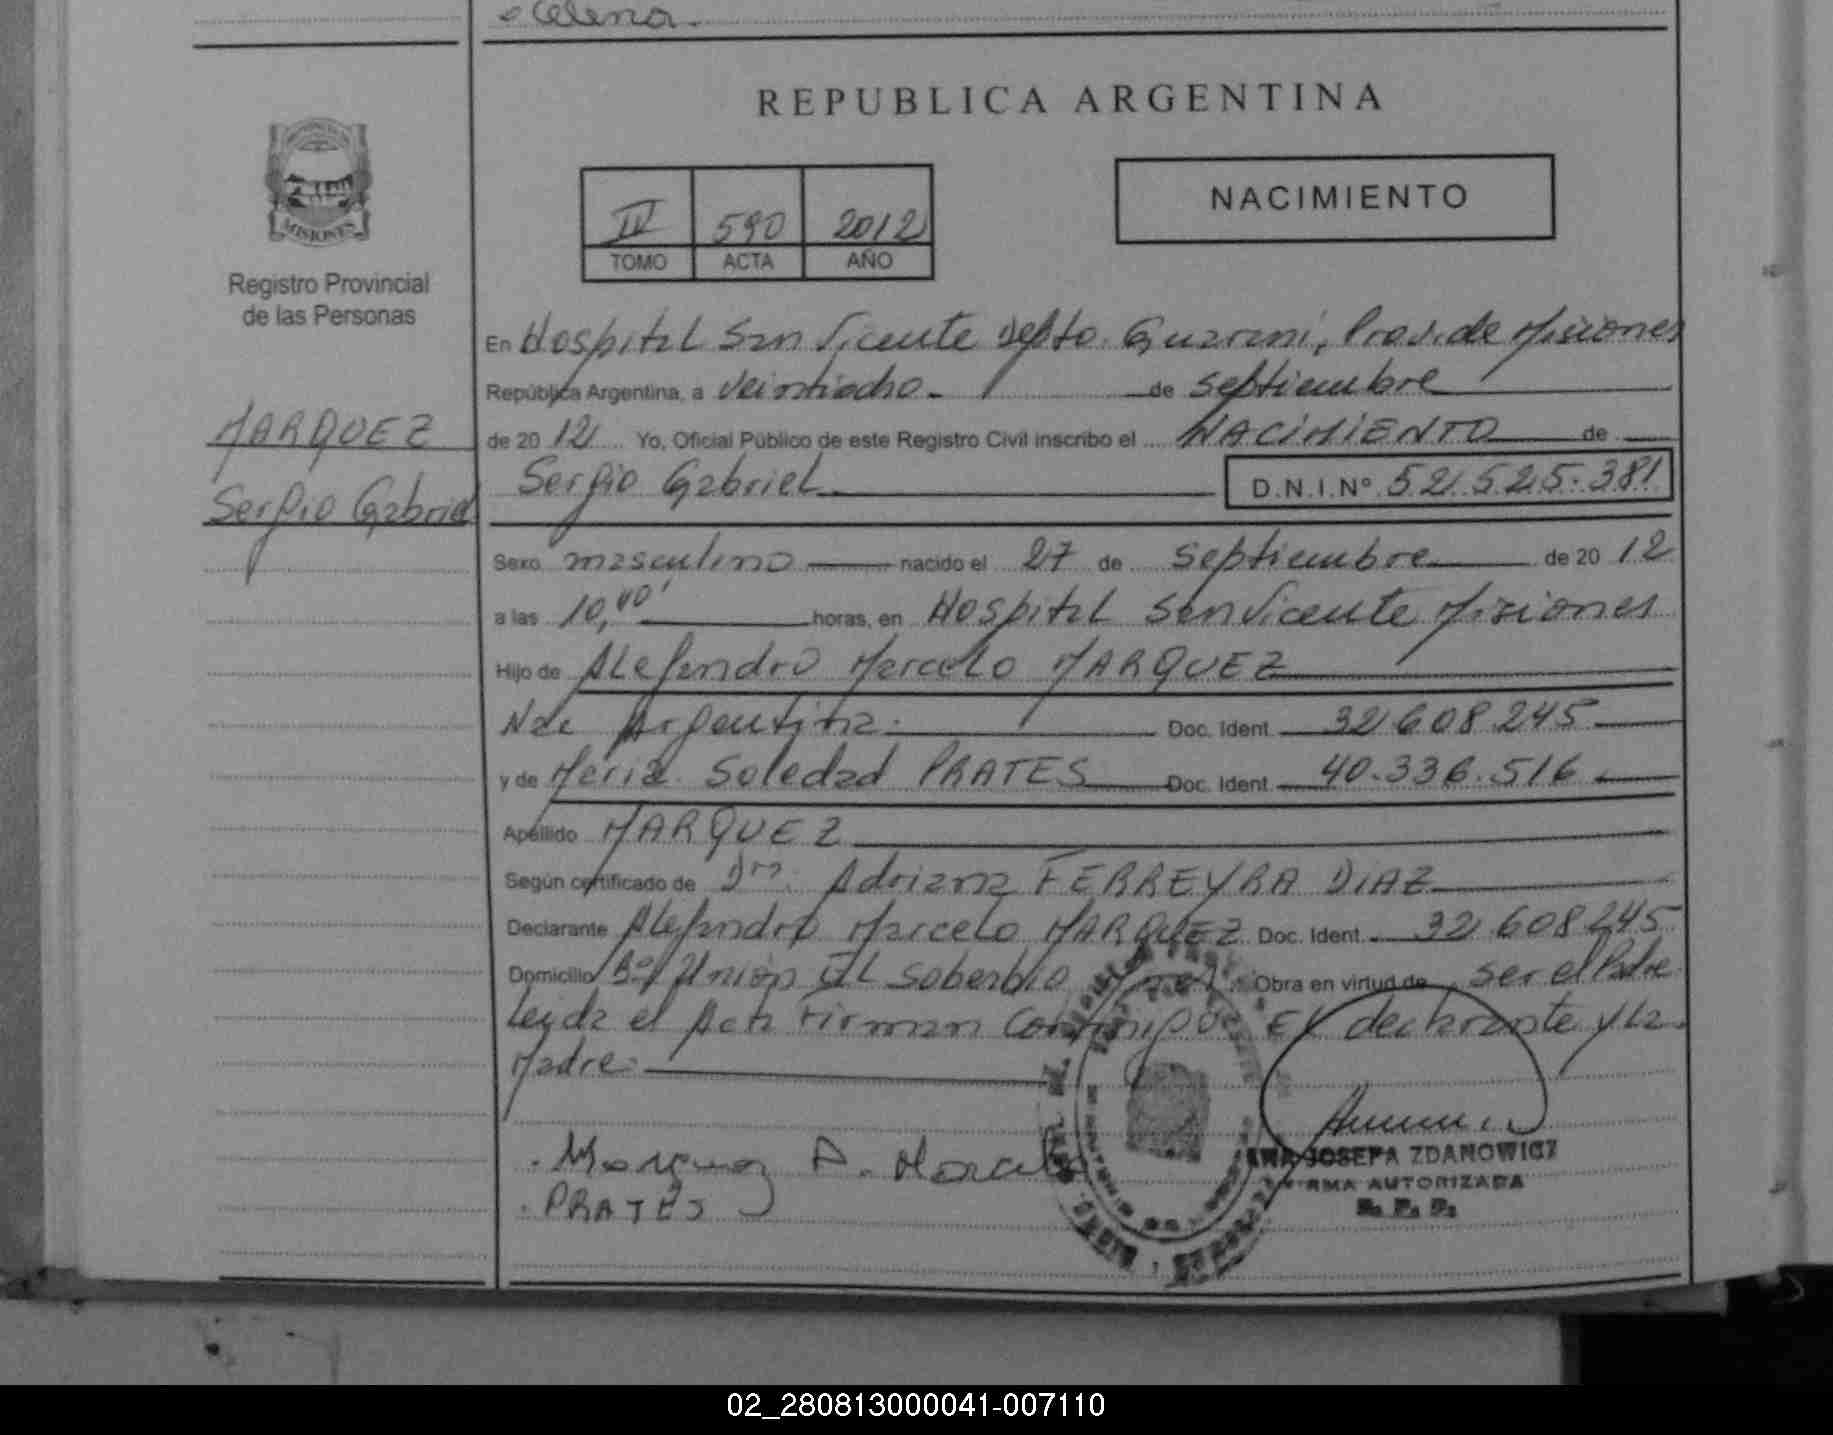 Celena.
REPUBLICA ARGENTINA
IV 590 2012
TOMO ACTA AÑO
NACIMIENTO
MISIONES
Registro Provincial
de las Personas
MARQUEZ
Sergio Gabriel
En Hospital San Vicente Depto. Guarani, Prov. de Misiones
República Argentina, a veintiocho. de septiembre
de 20 12 Yo, Oficial Público de este Registro Civil inscribo el NACIMIENTO de
Sergio Gabriel D.N.I.Nº 52.525.381
Sexo masculino nacido el 27 de Septiembre de 20 12
a las 10,40' horas, en Hospital San Vicente Misiones
Hijo de Alejandro Marcelo MARQUEZ
Nac Argentina. Doc. Ident. 32 608 245
y de Maria Soledad PRATES Doc. Ident. 40.336.516
Apellido MARQUEZ
Según certificado de Dra. Adriana FERREYRA DIAZ
Declarante Alejandro Marcelo MARQUEZ Doc. Ident. 32 608 245
Domicilio Bº Unión El Soberbio Mnes. Obra en virtud de ser el Padre
Leida el Acta Firman Conmigo El declarante y La
Madre
Marquez A. Marcelo
PRATES
ANA JOSEFA ZDANOWICZ
FIRMA AUTORIZADA
R. P. P.
02_280813000041-007110